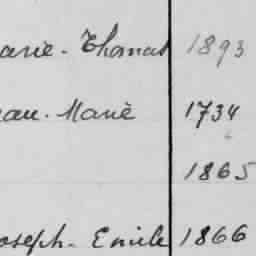 arie. Thomas 1893
ean. Marie 1734
1865
oseph. Emile 1866